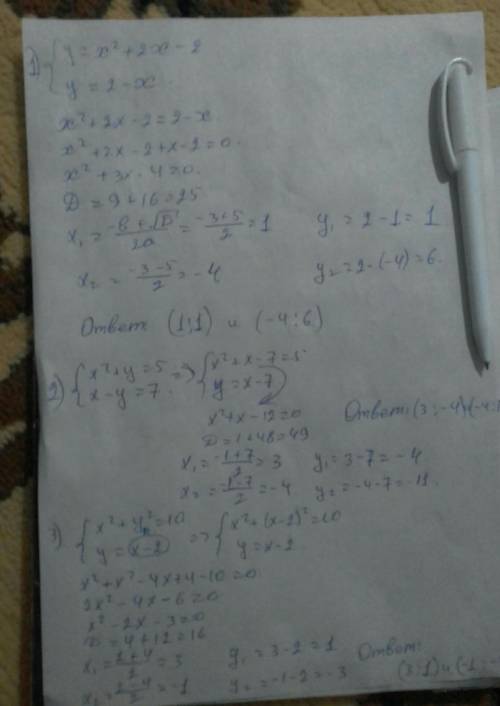 1) { y = x² + 2x - 2
y = 2 - x.
x² + 2x - 2 = 2 - x
x² + 2x - 2 + x - 2 = 0.
x² + 3x - 4 = 0.
D = 9 + 16 = 25
x₁ = (-b + √D)/2a = (-3+5)/2 = 1 y₁ = 2 - 1 = 1
x₂ = (-3-5)/2 = -4 y₂ = 2 - (-4) = 6.
Ответ: (1;1) и (-4;6)
2) { x² + y = 5 => { x² + x - 7 = 5
x - y = 7. y = x - 7
x² + x - 12 = 0
D = 1 + 48 = 49 Ответ: (3;-4)
x₁ = (-1+7)/2 = 3 y₁ = 3 - 7 = -4
x₂ = (-1-7)/2 = -4 y₂ = -4 - 7 = -11.
3) { x² + y² = 10 => { x² + (x-2)² = 10
y = x - 2 y = x - 2
x² + x² - 4x + 4 - 10 = 0
2x² - 4x - 6 = 0
x² - 2x - 3 = 0
D = 4 + 12 = 16
x₁ = (2+4)/2 = 3 y₁ = 3 - 2 = 1 Ответ:
x₂ = (2-4)/2 = -1 y₂ = -1 - 2 = -3 (3;1) и (-1;